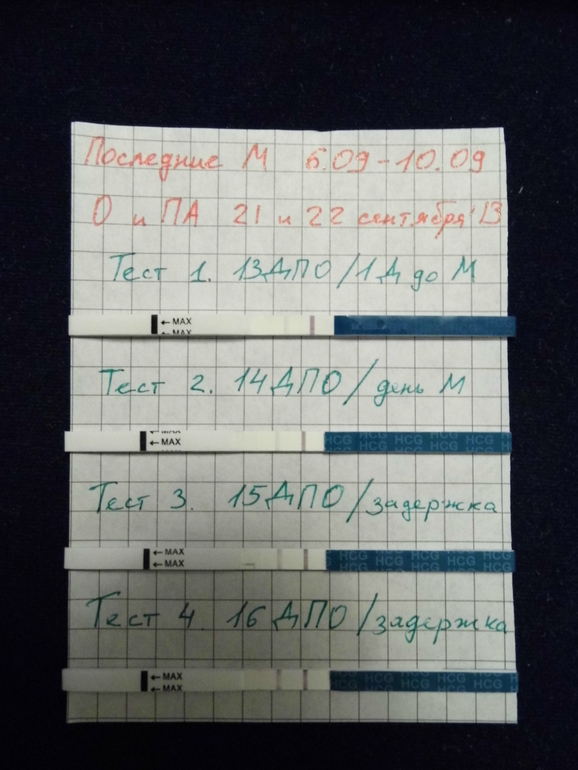 Последние М 6.09-10.09
О и ПА 21 и 22 сентября'13
Тест 1. 13ДПО/1Д до М
←MAX
←MAX
Тест 2. 14ДПО/день М
←MAX
←MAX
HCG HCG HCG HCG HCG
HCG HCG HCG HCG
Тест 3. 15ДПО/задержка
←MAX
←MAX
HCG HCG HCG
HCG HCG HCG
Тест 4. 16ДПО/задержка
←MAX
←MAX
HCG HCG HCG HCG
HCG HCG HCG HCG